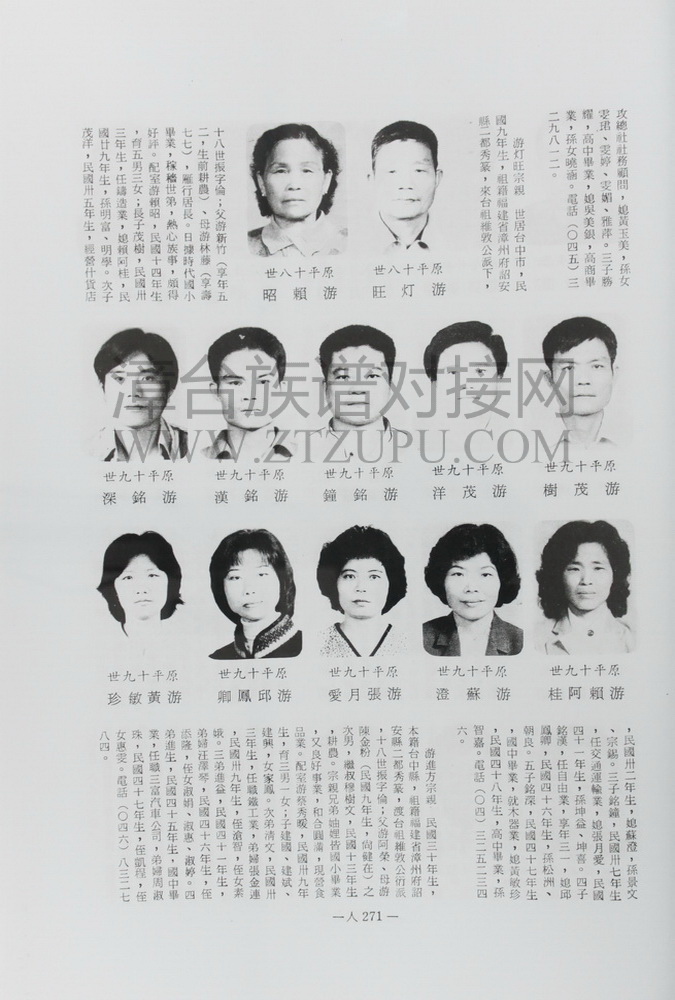 攻總社社務顧問，媳黃玉美，孫女
雯珺、雯婷、雯媚、雅萍。三子勝
耀，高中畢業，媳吳美銀，高商畢
業，孫女曉涵。電話（〇四五）三
二九八一二。
游灯旺宗親　世居台中市，民
國九年生，祖籍福建省漳州府詔安
縣二都秀篆，來台祖維敦公派下，
十八世振字倫；父游新竹（享年五
二，生前耕農）、母游林藤（享壽
七七），雁行居長。日據時代國小
畢業，稼穡世弟，熱心族事，頗得
好評。配室游賴昭，民國十四年生
，育五男三女；長子茂樹，民國卅
三年生，任鑄造業，媳賴阿桂，民
國廿九年生，孫明富、明學。次子
茂洋，民國卅五年生，經營什貨店
世八十平原
旺灯游
世八十平原
昭賴游
世九十平原
樹茂游
世九十平原
洋茂游
世九十平原
鐘銘游
世九十平原
漢銘游
世九十平原
深銘游
漳台族谱对接网
WWW.ZTZUPU.COM
世九十平原
桂阿賴游
世九十平原
澄蘇游
世九十平原
愛月張游
世九十平原
卿鳳邱游
世九十平原
珍敏黃游
，民國卅二年生，媳蘇澄，孫景文
、宗錫。三子銘鐘，民國卅七年生
，任交通運輸業，媳張月愛，民國
四十一年生，孫坤益、坤喜。四子
銘漢，任自由業，享年三一，媳邱
鳳卿，民國四十六年生，孫松洲、
朝良。五子銘深，民國四十七年生
，國中畢業，就木器業，媳黃敏珍
，民國四十八年生，高中畢業，孫
智嘉。電話（〇四）三二五二三四
六。
游進方宗親　民國三十年生，
本籍台中縣，祖籍福建省漳州府詔
安縣二都秀篆，渡台祖維敦公衍派
，十八世振字倫；父游阿榮、母游
陳金粉（民國九年生，尚健在）之
次男，繼叔穆樹文，民國十三年生
，耕農。宗親兄弟妯娌皆國小畢業
，又良好事業，和合圓滿，現營食
品業。配室游蔡秀暖，民國卅九年
生，育三男一女；子建國、建斌、
建興，女家鳳。次弟清文，民國卅
三年生，任職鐵工業，弟婦張金連
，民國卅九年生，侄滄智，侄女素
娥。三弟進益，民國四十一年生，
弟婦汪澤琴，民國四十六年生，侄
添隆，侄女淑娟、淑惠、淑婷。四
弟進生，民國四十五年生，國中畢
業，任職三富汽車公司，弟婦周淑
珠，民國四十七年生，侄凱程，侄
女惠雯。電話（〇四六）八三二七
八四。
—人271—